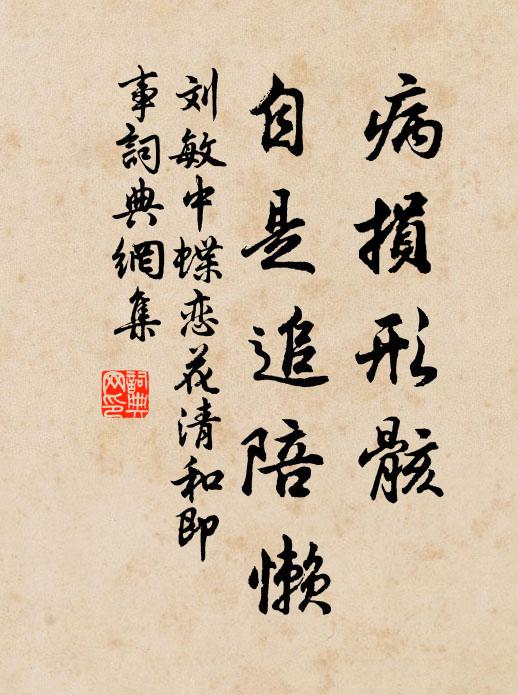 病損形骸
自是追陪懒
刘敏中蝶恋花清和即
事詞典網集
詞典
网印